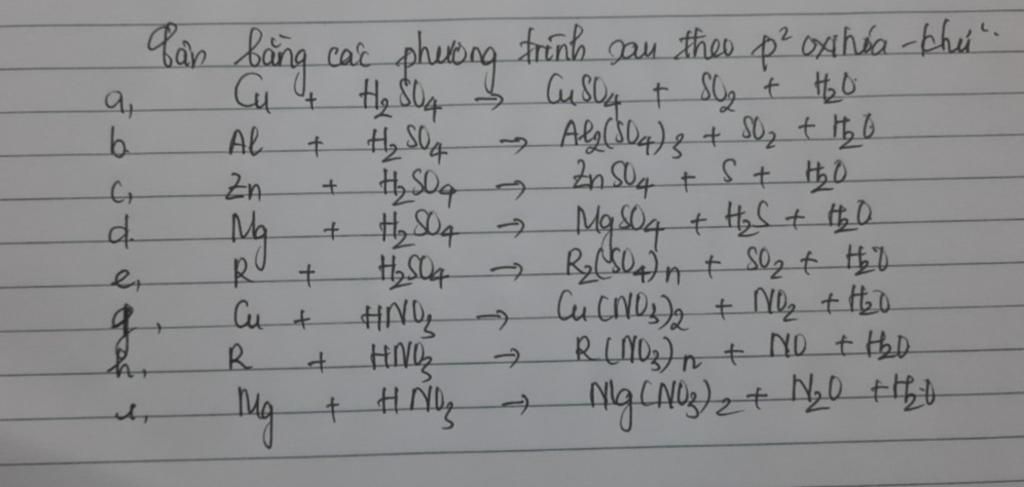 Cân bằng các phương trình sau theo p² oxi hóa - khử.
a, Cu + H₂SO₄ → CuSO₄ + SO₂ + H₂O
b Al + H₂SO₄ → Al₂(SO₄)₃ + SO₂ + H₂O
c, Zn + H₂SO₄ → ZnSO₄ + S + H₂O
d. Mg + H₂SO₄ → MgSO₄ + H₂S + H₂O
e, R + H₂SO₄ → R₂(SO₄)n + SO₂ + H₂O
g, Cu + HNO₃ → Cu(NO₃)₂ + NO₂ + H₂O
h, R + HNO₃ → R(NO₃)n + NO + H₂O
i, Mg + HNO₃ → Mg(NO₃)₂ + N₂O + H₂O